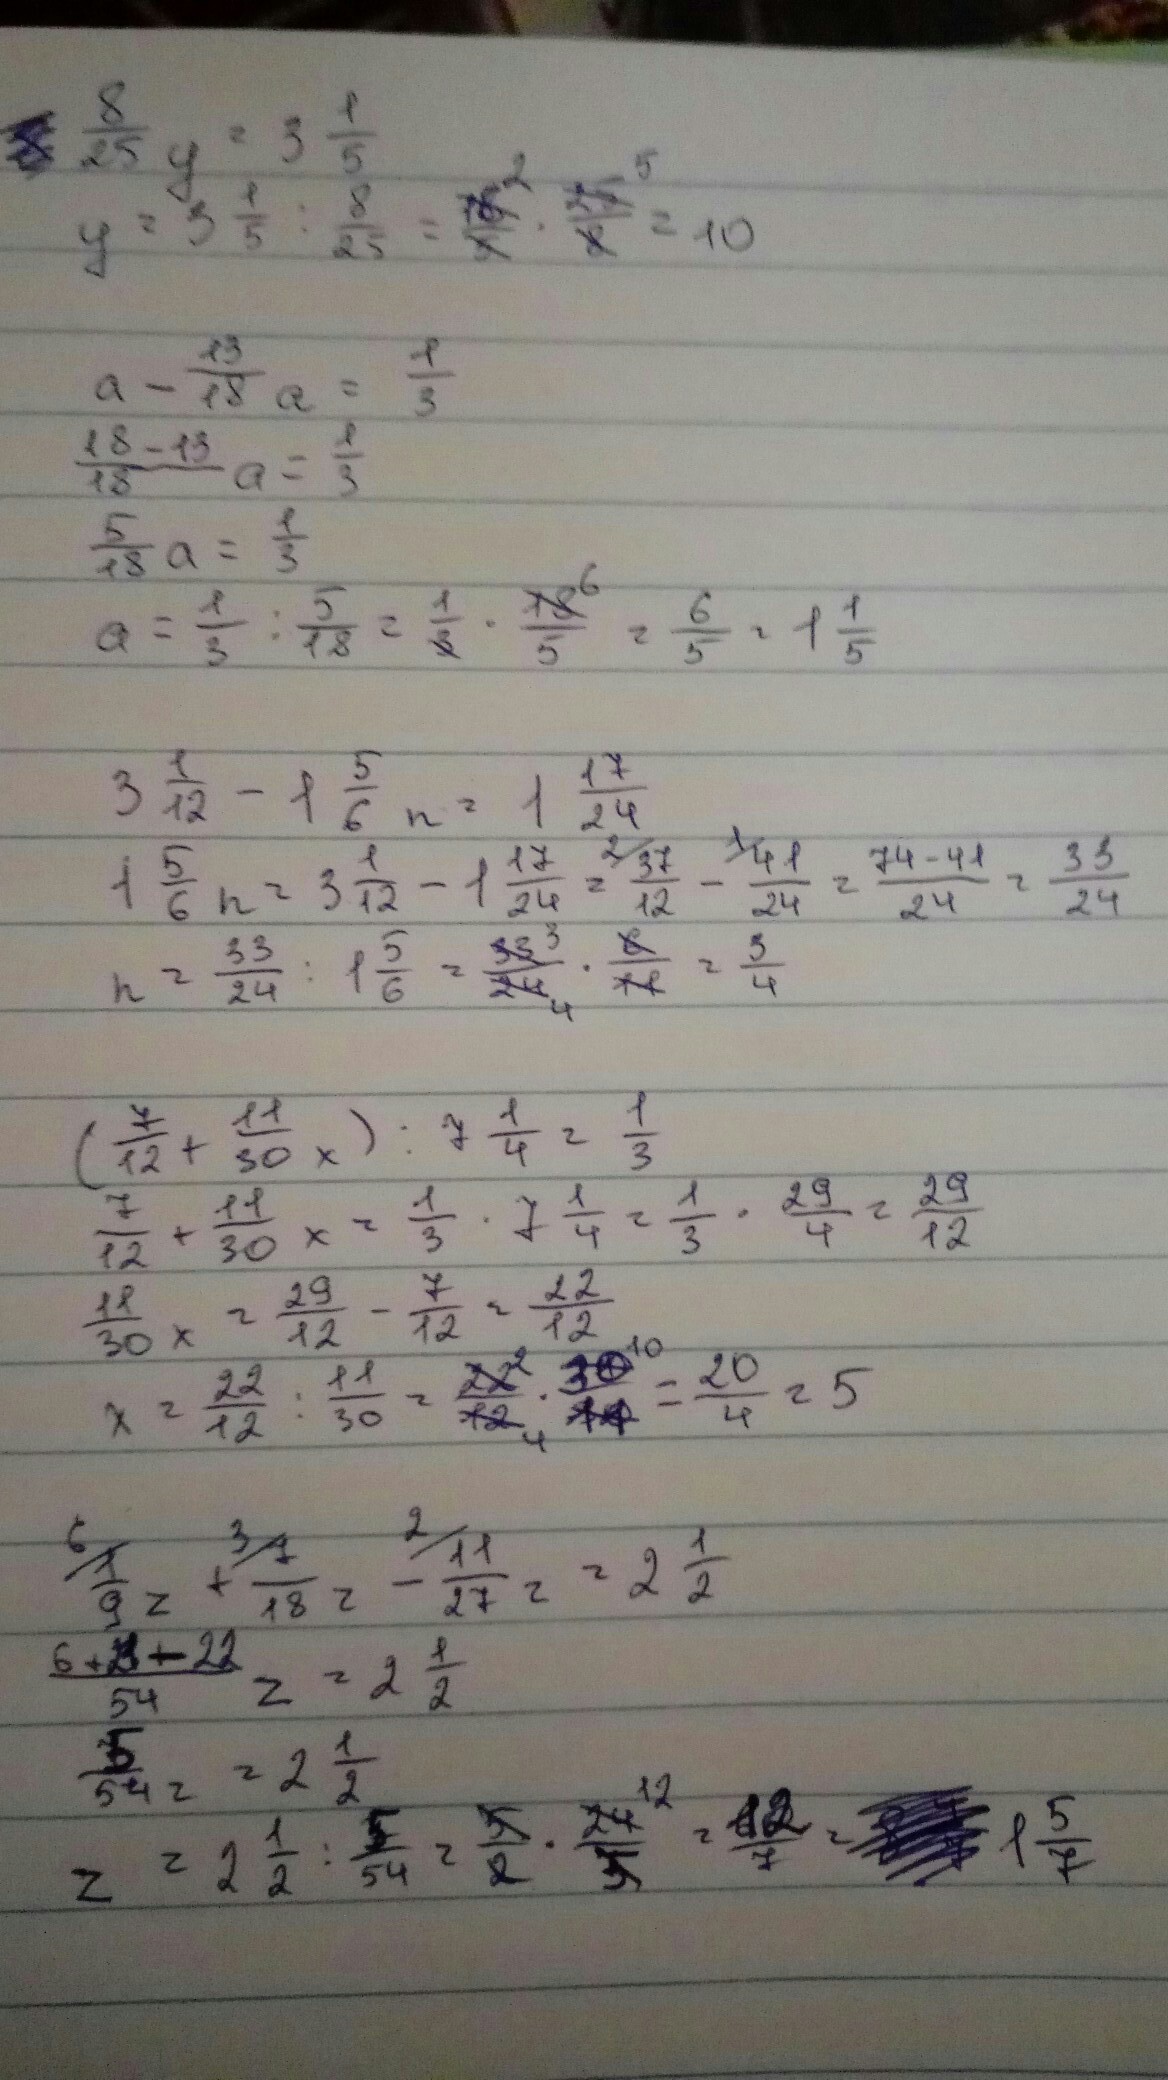 8/25 y = 3 1/5
y = 3 1/5 : 8/25 = 16/5 2 · 25/8 5 = 10
a - 13/18 a = 1/3
18-13/18 a = 1/3
5/18 a = 1/3
a = 1/3 : 5/18 = 1/3 · 18/5 6 = 6/5 = 1 1/5
3 1/12 - 1 5/6 n = 1 17/24
1 5/6 n = 3 1/12 - 1 17/24 = 2/ 37/12 - 1/ 41/24 = 74-41/24 = 33/24
n = 33/24 : 1 5/6 = 33/24 3 4 · 6/11 = 3/4
(7/12 + 11/30 x) : 7 1/4 = 1/3
7/12 + 11/30 x = 1/3 · 7 1/4 = 1/3 · 29/4 = 29/12
11/30 x = 29/12 - 7/12 = 22/12
x = 22/12 : 11/30 = 22/12 2 4 · 30/11 10 = 20/4 = 5
6/ 1/9 z + 3/ 7/18 z - 2/ 11/27 z = 2 1/2
6+21-22/54 z = 2 1/2
5/54 z = 2 1/2
z = 2 1/2 : 5/54 = 5/2 · 24/5 12 = 12/7 = 1 5/7